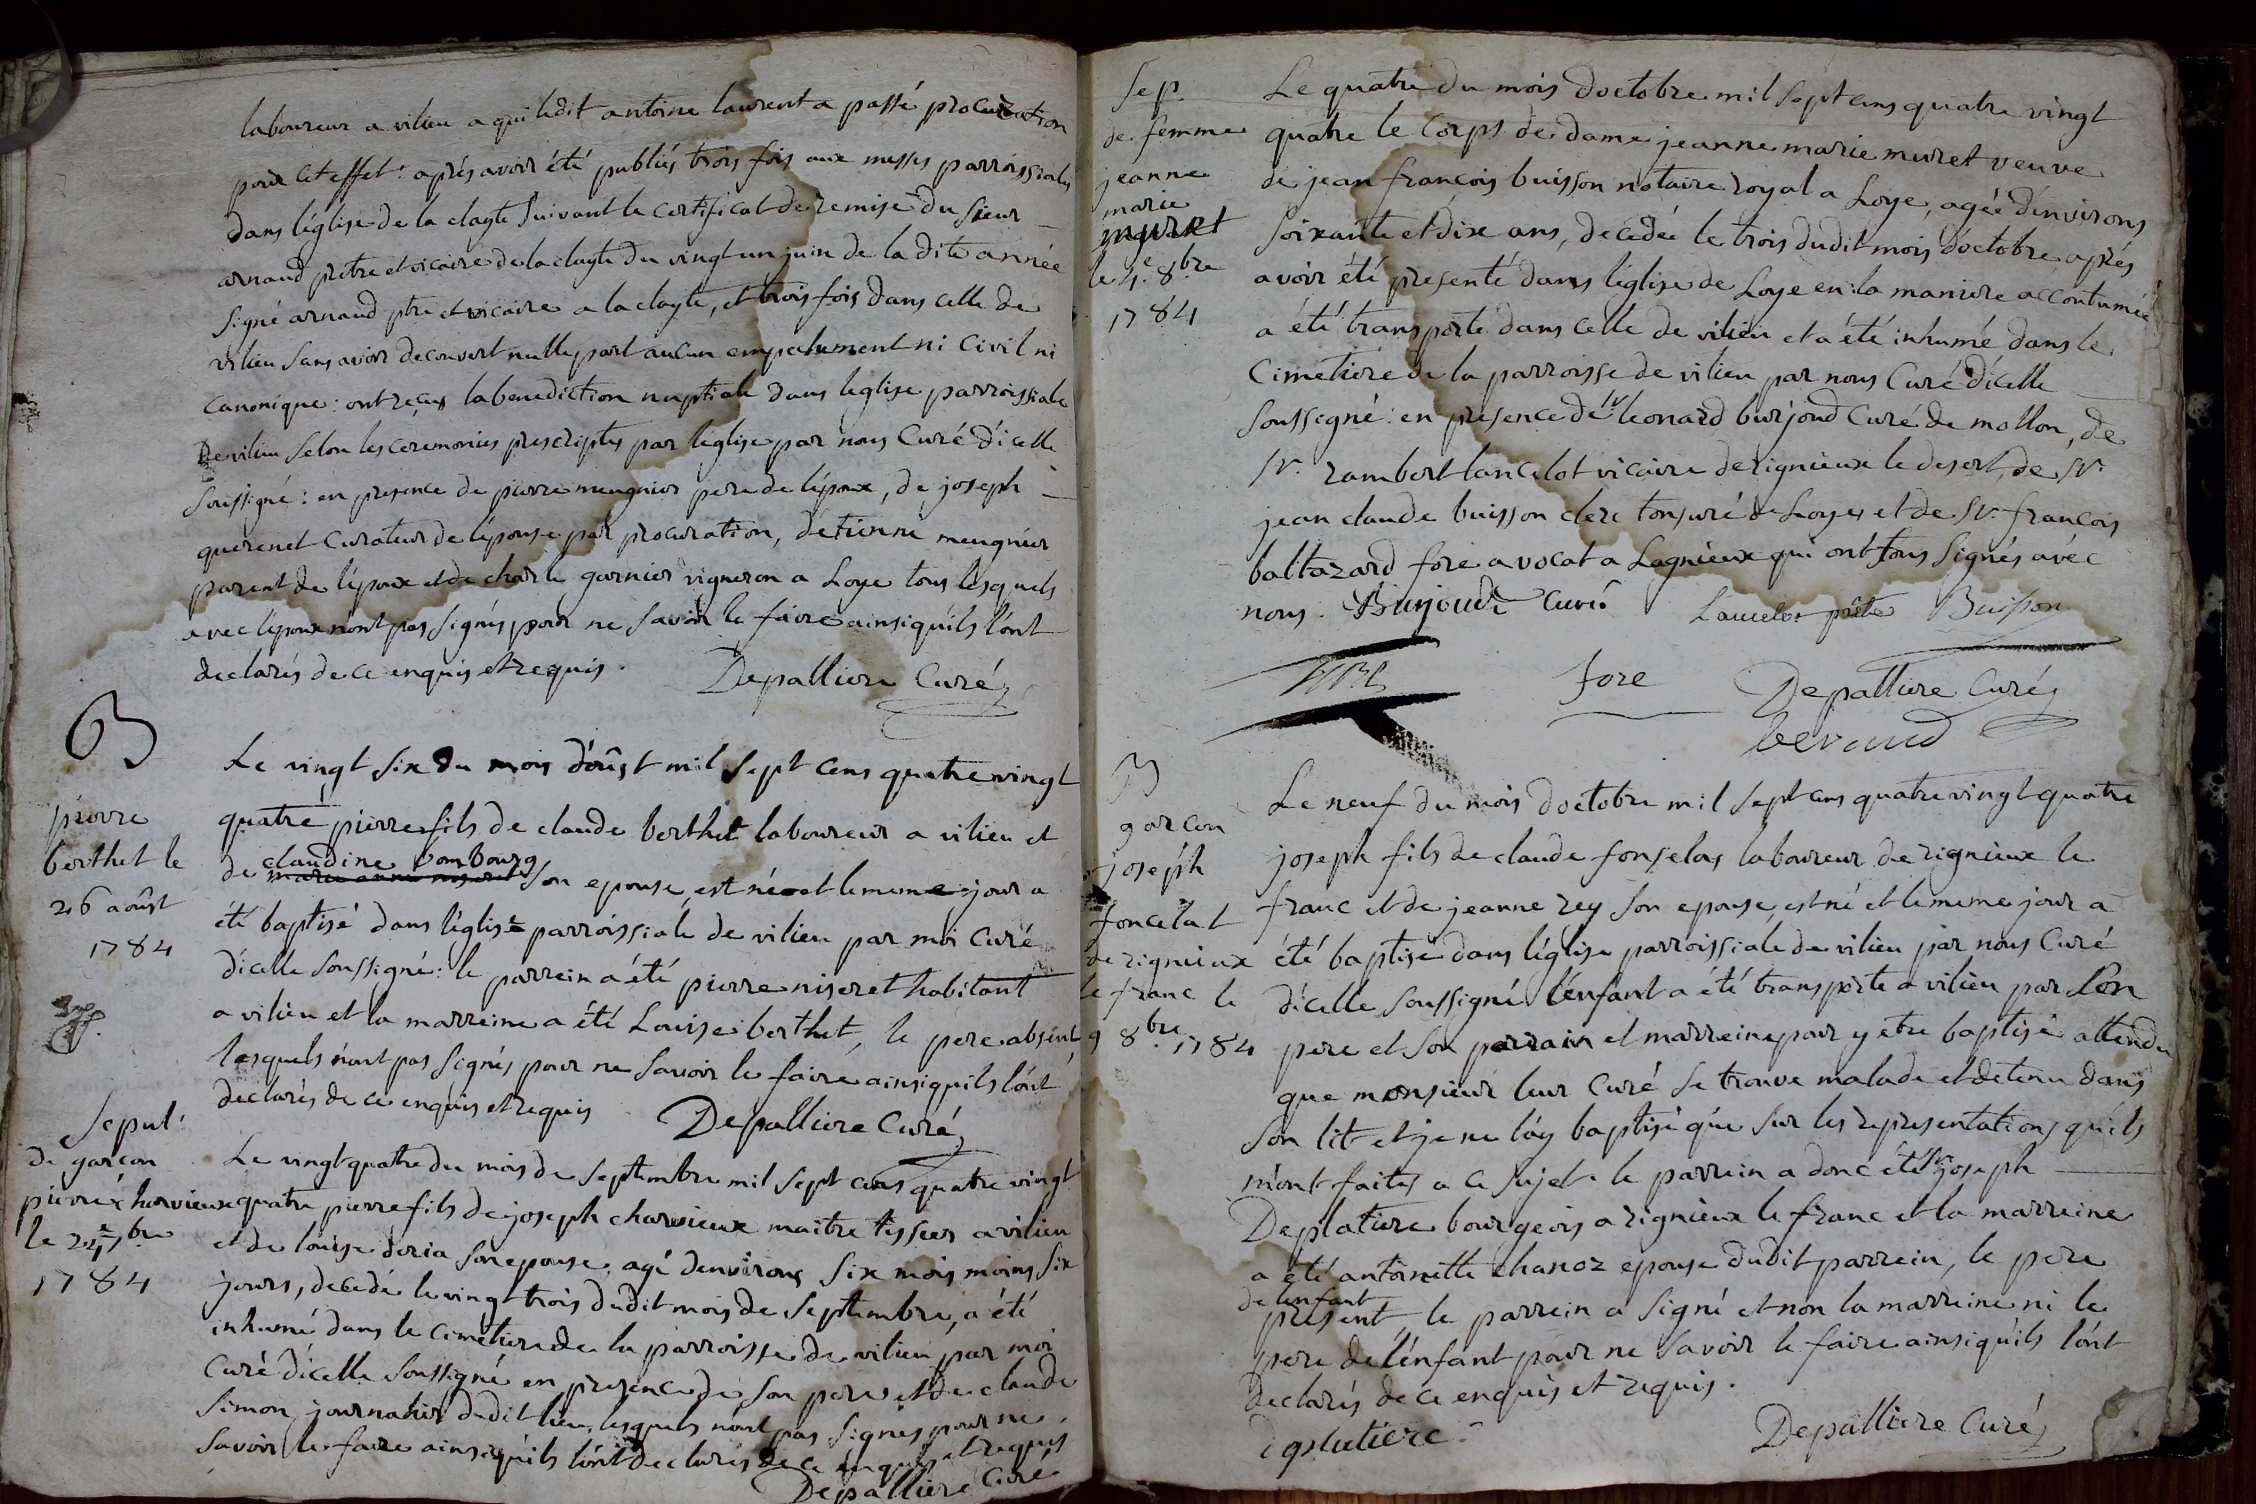 laboureur a vilieu a qui ledit antoine laurent a passé procuration
pour cet effet : aprés avoir été publiés trois fois aux messes parroissiales
dans léglise de la clayte suivant le certificat de remise du sieur
arnaud prêtre et vicaire de la clayte du vingt un juin de la dite année
signé arnaud ptre et vicaire a la clayte, et trois fois dans celle de
vilieu sans avoir decouvert nulle part aucun empechement ni civil ni
canonique : ont reçus la benediction nuptiale dans leglise parroissiale
de vilieu selon les ceremonies prescriptes par léglise par nous Curé dicelle
soussigné : en presence de pierre meugnier pere de lépoux, de joseph
querenet Curateur de lépouse par procuration, détienne meugnier
parent de lépoux et de charle garnier vigneron a Loye tous lesquels
avec lépoux n'ont pas signés pour ne savoir le faire ainsi quils lont
declarés de ce enquis et requis. Depalliere Curé
B
pierre
berthet le
26 août
1784
Le vingt six du mois d'oûst mil sept cens quatre vingt
quatre pierre fils de claude berthet laboureur a vilieu et
claudine bombourg
de son epouse, est né et le meme jour a
été baptisé dans léglise parroissiale de vilieu par moi Curé
dicelle soussigné : le parrein a été pierre niseret habitant
a vilieu et la marreine a été Louise berthet, le pere absent
lesquels n'ont pas signés pour ne savoir le faire ainsi quils lont
declarés de ce enquis et requis Depalliere Curé
Sepul.
de garçon
pierre charvieux
le 24 7bre
1784
Le vingt quatre du mois de septembre mil sept cens quatre vingt
quatre pierre fils de joseph charvieux maitre tissier a vilieu
et de louise doria son epouse, agé denvirons six mois moins six
jours, decedé le vingt trois dudit mois de septembre, a été
inhumé dans le cimetiere de la parroisse de vilieu par moi
Curé dicelle soussigné en presence de son pere et de claude
simon journalier dudit lieu, lesquels n'ont pas signés pour ne
savoir le faire ainsi quils lont declarés de ce enquis et requis
Depalliere Curé
Sep.
de femme
jeanne
marie
muret
le 4e 8bre
1784
Le quatre du mois doctobre mil sept cens quatre vingt
quatre le Corps de dame jeanne marie muret veuve
de jean françois buisson notaire royal a Loye, agée denvirons
soixante et dix ans, decedée le trois dudit mois doctobre, aprés
avoir été presenté dans léglise de Loye en la maniere accoutumée
a été transporté dans celle de vilieu et a été inhumé dans le
Cimetiere de la parroisse de vilieu par nous Curé dicelle
soussigné : en presence de sr leonard burjoud Curé de mollon, de
sr. rambert lancelot vicaire de rignieux le desert, de sr.
jean claude buisson clerc tonsuré de Loye et de sr. françois
baltazard fore avocat a Lagnieux qui ont tous signés avec
nous. Burjoud Curé Lancelot prêtre Buisson
fore Depalliere Curé
B
garçon
joseph
foncelat
de rignieux
le franc le
9 8bre 1784
Le neuf du mois doctobre mil sept cens quatre vingt quatre
joseph fils de claude fonselas laboureur de rignieux le
franc et de jeanne rey son epouse, est né et le meme jour a
été baptisé dans léglise parroissiale de vilieu par nous Curé
dicelle soussigné lénfant a été transporté a vilieu par son
pere et son parrain et marreine pour y etre baptisé attendu
que monsieur leur Curé se trouve malade et detenu dans
son lit et je ne lay baptisé que sur les representations quils
m'ont faites a ce sujet. le parrein a donc été sr joseph
Deplatiere bourgeois a rignieux le franc et la marreine
a été antoinette chanoz epouse dudit parrein, le pere
de lenfant
present, le parrein a signé et non la marreine ni le
pere de lénfant pour ne savoir le faire ainsi quils lont
declarés de ce enquis et requis.
Depalliere Curé